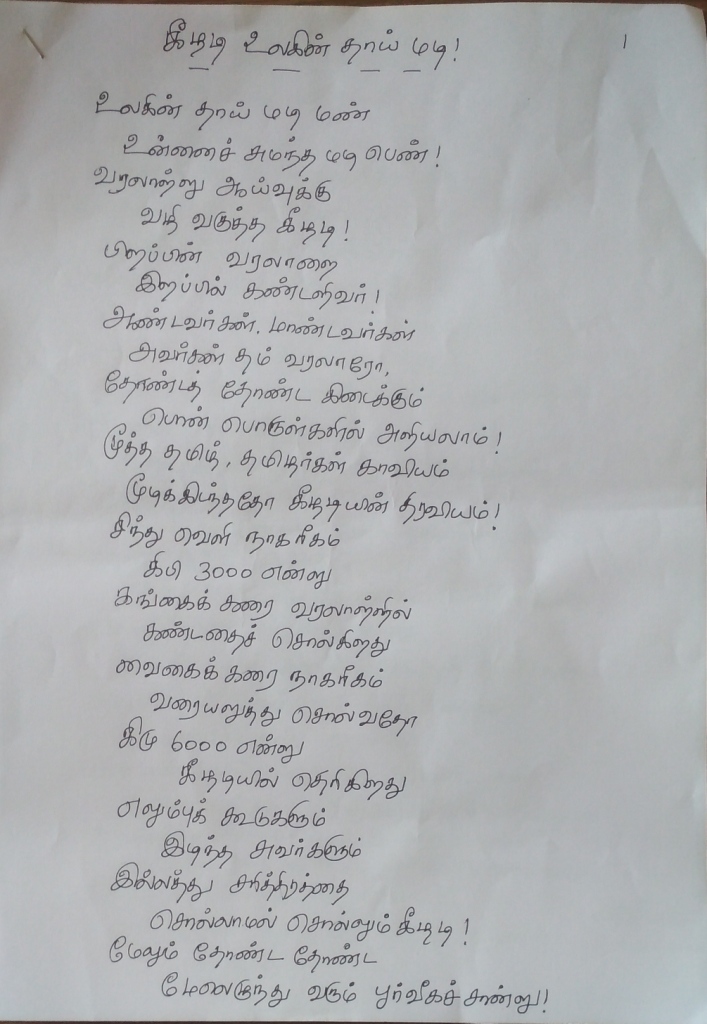 கீழடி உலகின் தாய் மடி!
1
உலகின் தாய் மடி மண்
உன்னைச் சுமந்த மடி பெண்!
வரலாற்று ஆய்வுக்கு
வழி வகுத்த கீழடி!
பிறப்பின் வரலாறை
இறப்பில் கண்டறிவர்!
ஆண்டவர்கள், மாண்டவர்கள்
அவர்கள் தம் வரலாரோ,
தோண்டத் தோண்ட கிடைக்கும்
பொன் பொருள்களில் அறியலாம்!
மூத்த தமிழ், தமிழர்கள் காவியம்
முடிக்கிடந்ததோ கீழடியின் திரவியம்!
சிந்து வெளி நாகரீகம்
கிபி 3000 என்று
கங்கைக் கரை வரலாற்றில்
கண்டதைச் சொல்கிறது
வைகைக் கரை நாகரீகம்
வரையறுத்து சொல்வதோ
கிமு 6000 என்று
கீழடியில் தெரிகிறது
எலும்புக் கூடுகளும்
இடிந்த சுவர்களும்
இல்லத்து சரித்திரத்தை
சொல்லாமல் சொல்லும் கீழடி!
மேலும் தோண்ட தோண்ட
மேலெழுந்து வரும் பூர்வீகச் சான்று!